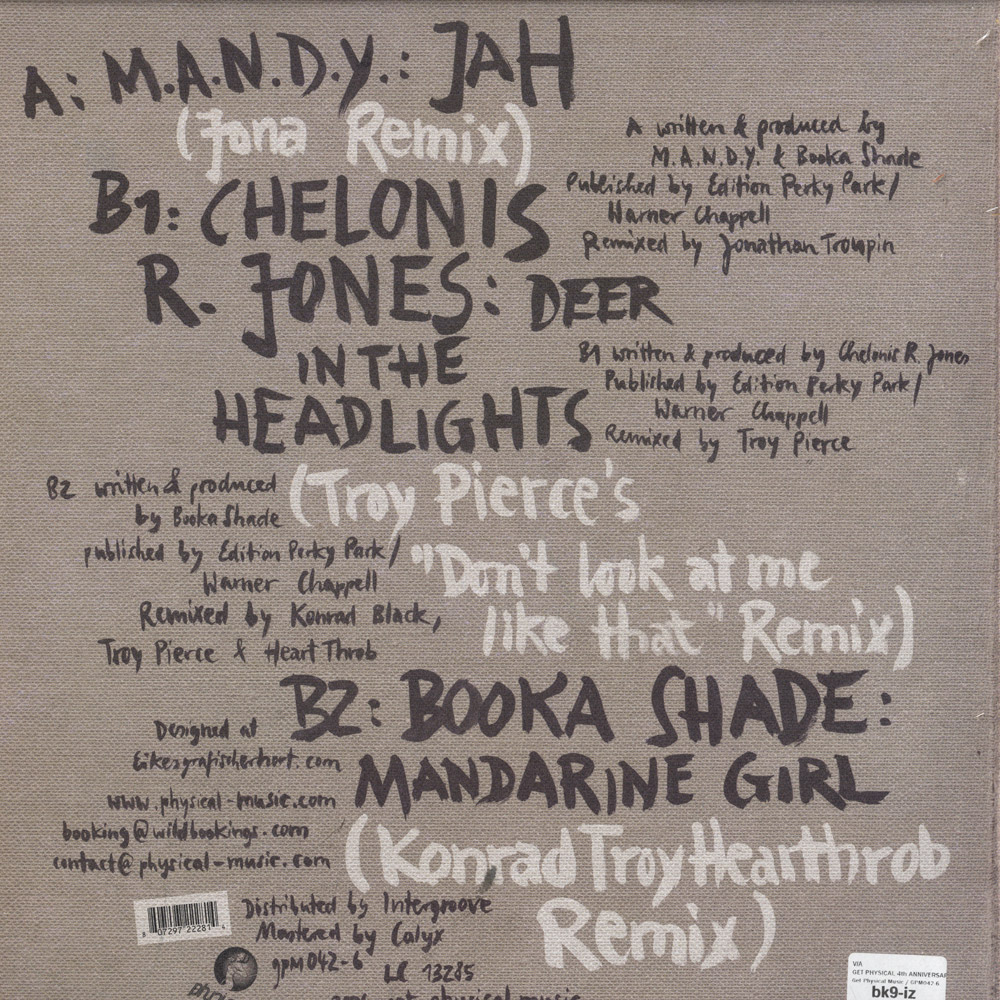 A: M.A.N.D.Y.: JAH
(Jona Remix)
A written & produced by
M.A.N.D.Y. & Booka Shade
Published by Edition Perky Park/
Warner Chappell
Remixed by Jonathan Troupin
B1: CHELONIS
R. JONES: DEER
IN THE
HEADLIGHTS
B1 written & produced by Chelonis R. Jones
Published by Edition Perky Park/
Warner Chappell
Remixed by Troy Pierce
(Troy Pierce's
"Don't look at me
like that" Remix)
B2 written & produced
by Booka Shade
published by Edition Perky Park/
Warner Chappell
Remixed by Konrad Black,
Troy Pierce & Heart Throb
B2: BOOKA SHADE:
MANDARINE GIRL
(Konrad Troy Hearthrob
Remix)
Designed at
www.physical-music.com
booking@wildbookings.com
contact@physical-music.com
Distributed by Intergroove
Mastered by Calyx
gpm042-6
LC 13285
VIA
GET PHYSICAL 4th ANNIVERSAR
Get Physical Music / GPM042-6
bk9-iz